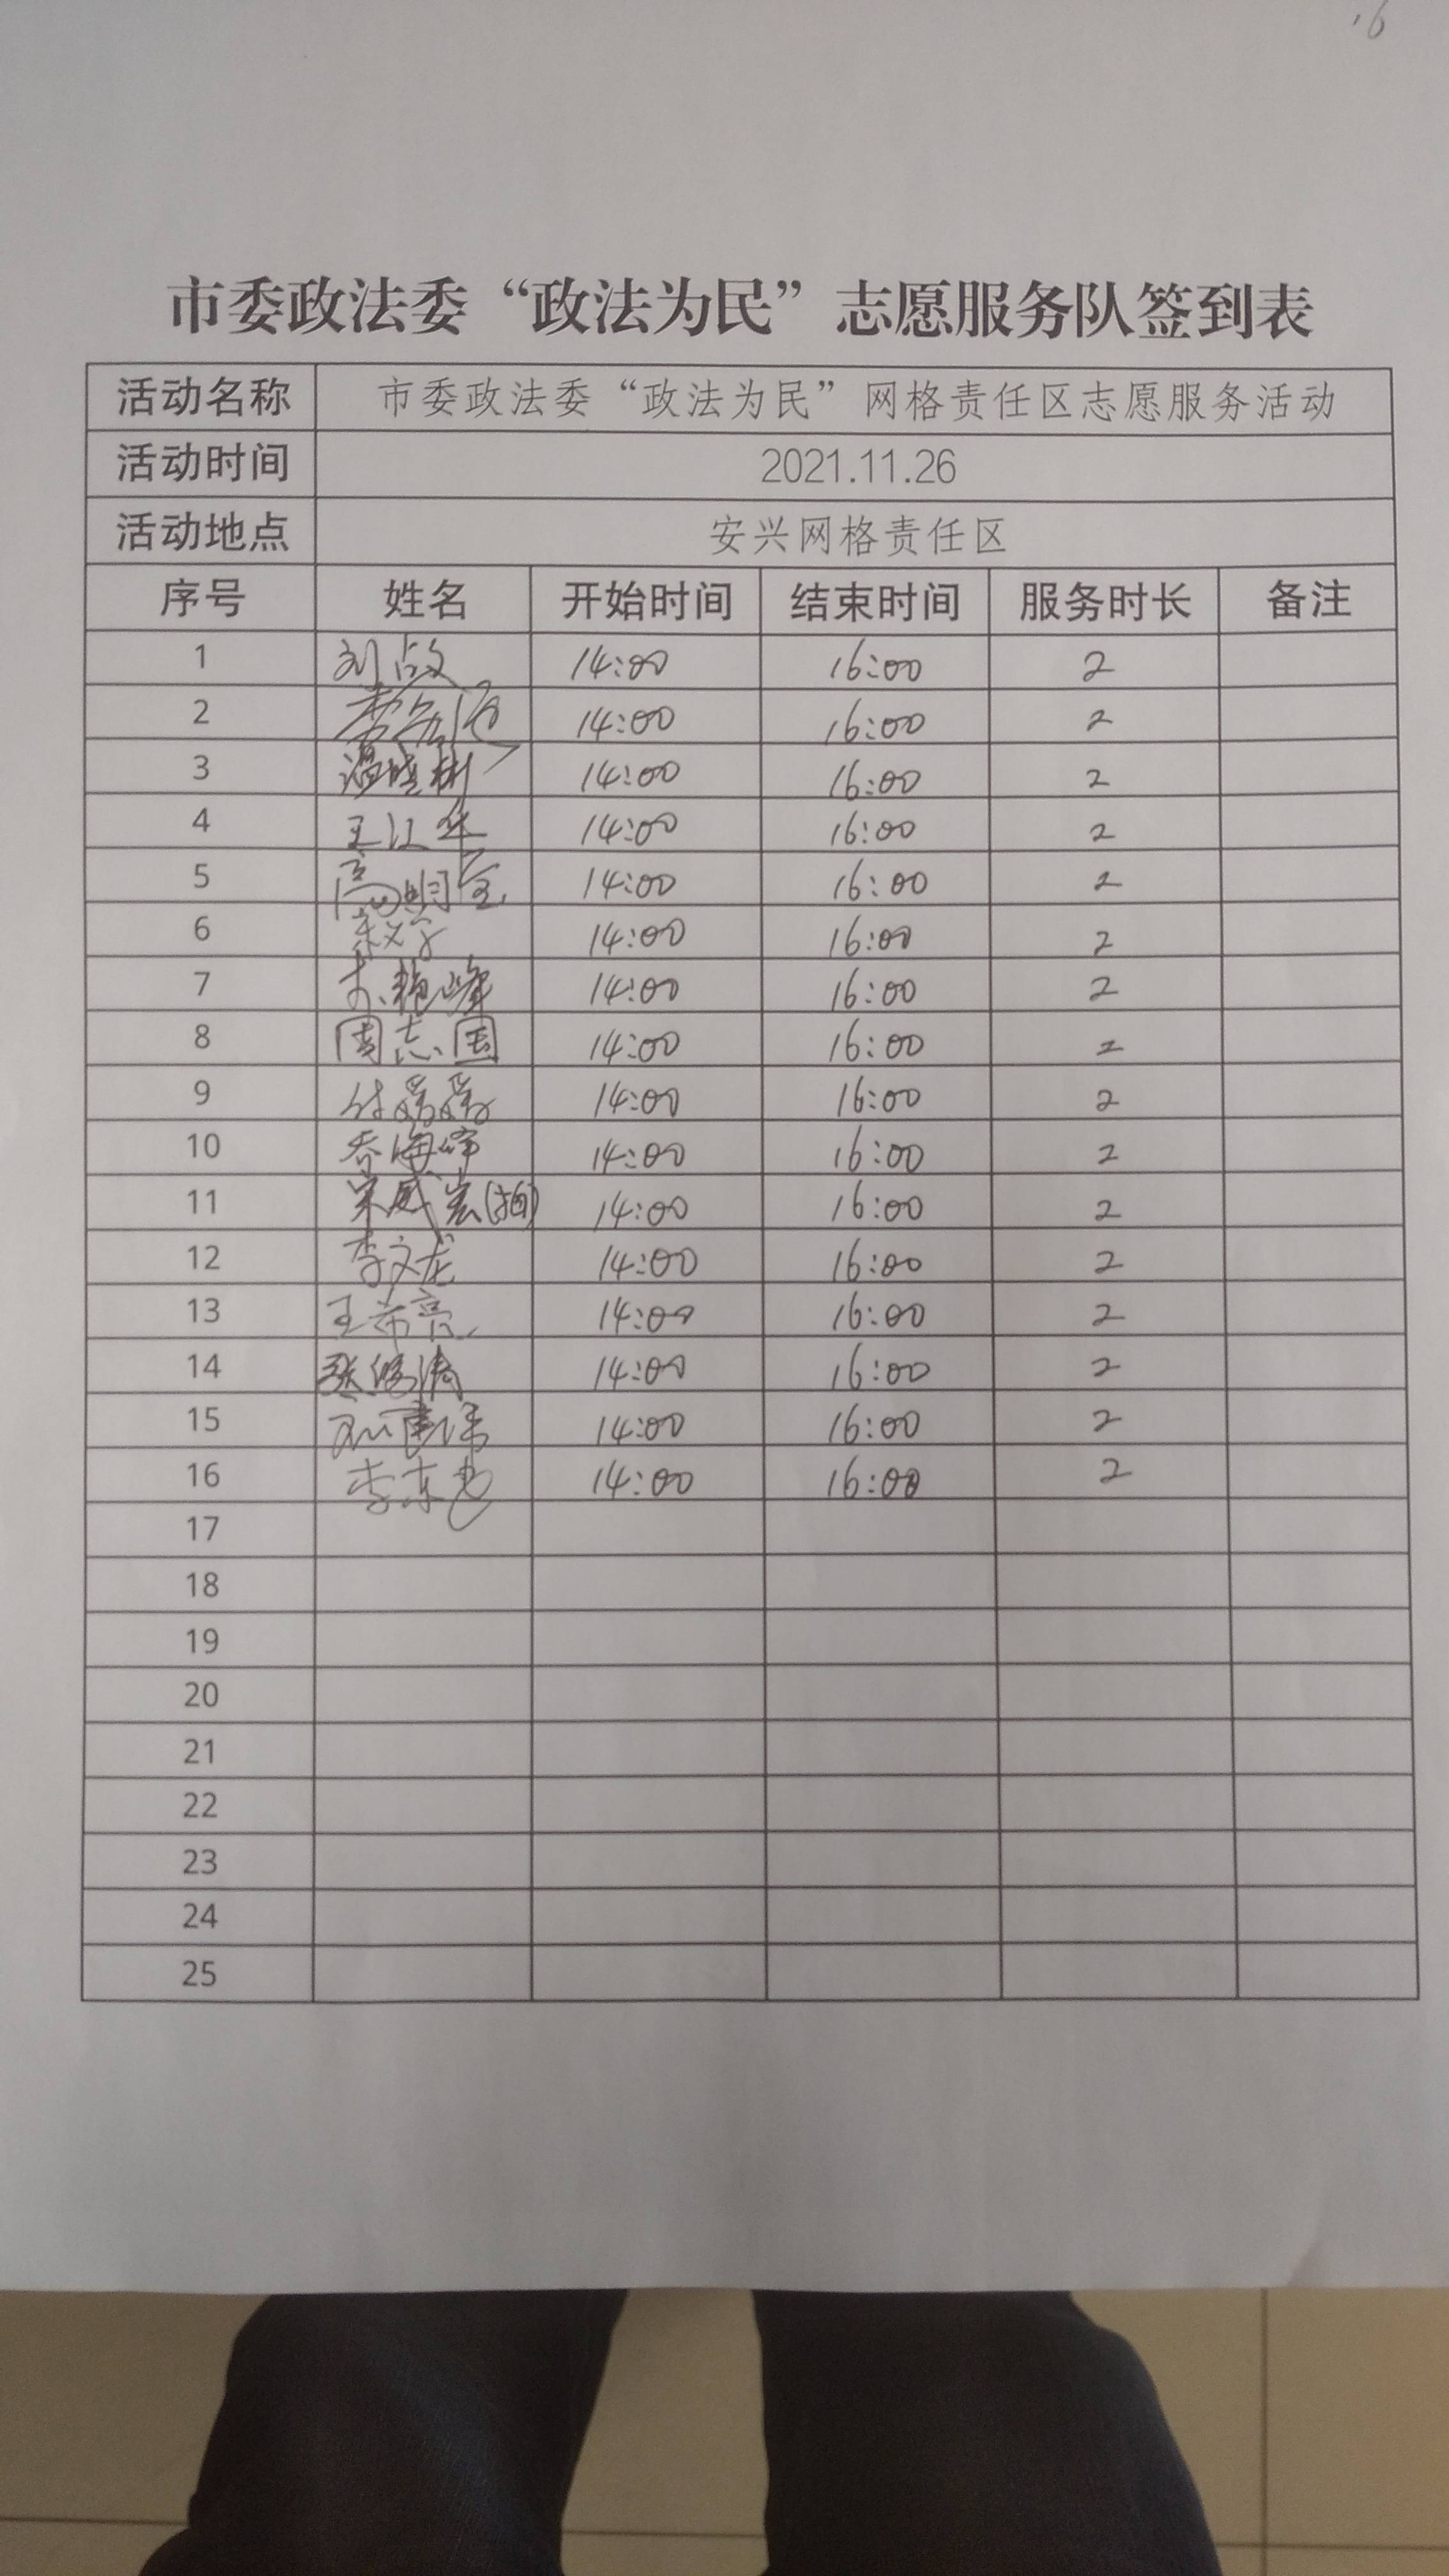 16
市委政法委“政法为民”志愿服务队签到表
活动名称 市委政法委“政法为民”网格责任区志愿服务活动
活动时间 2021.11.26
活动地点 安兴网格责任区
序号 姓名 开始时间 结束时间 服务时长 备注
1 刘 14:00 16:00 2
2 14:00 16:00 2
3 温晓彬 14:00 16:00 2
4 王江华 14:00 16:00 2
5 高明 14:00 16:00 2
6 14:00 16:00 2
7 艳峰 14:00 16:00 2
8 周志国 14:00 16:00 2
9 付媛媛 14:00 16:00 2
10 乔海峰 14:00 16:00 2
11 宋威岩(拍) 14:00 16:00 2
12 李文龙 14:00 16:00 2
13 王希亮 14:00 16:00 2
14 张 14:00 16:00 2
15 14:00 16:00 2
16 李东 14:00 16:00 2
17
18
19
20
21
22
23
24
25